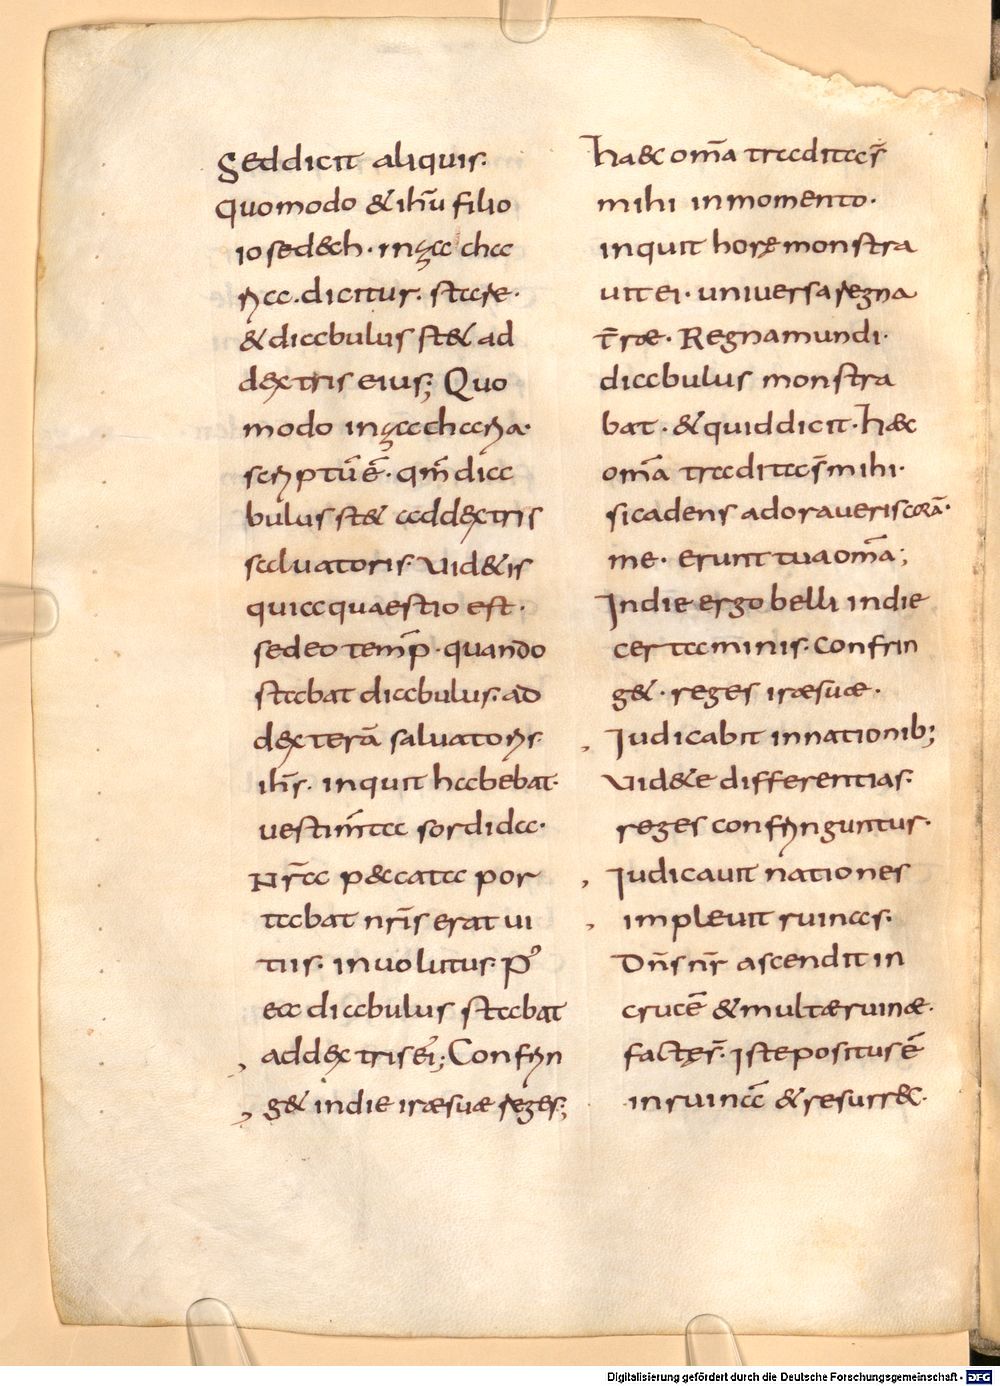 Seddicit aliquis.
Quomodo & ih̅u filio
iosed&ch. inza cha
ria. dicitur. stare.
& diabulus st& ad
dextris eius; Quo
modo inzachcaria.
scriptu̅ e̅. qm̅ dia
bulus st& addextris
saluatoris. Uid&is
quia quaestio est.
sedeo temp̅. quando
stabat diabulus. ad
dextera̅ saluatoris.
ih̅s. inquit habebat.
uestim̅ta sordida.
Nr̅a p&cata por
tabat nr̅is erat ui
tiis. inuolutus. P᾽
ea diabulus stabat
addextris ei̅; Confrin
g& indie irae suae reges;
Haec om̅a traditas̅
mihi inmomento.
inquit horę monstra
uit ei. uniuersa regna
t̅rae. Regna mundi.
diabulus monstra
bat. & quid dicit. Haec
om̅a tradita s̅ mihi.
si cadens adoraueris cora̅.
me. erunt tua om̅a;
Indie ergo belli indie
certaminis. Confrin
g&. reges irae suae.
Iudicabit innationib;
Uid&e differentias.
reges confringuntur.
Iudicauit nationes
impleuit ruinas.
Dn̅s nr̅ ascendit in
cruce̅ & multae ruinae.
factę s̅. iste positus e̅
inruina̅ & resurrec.
Digitalisierung gefördert durch die Deutsche Forschungsgemeinschaft - DFG